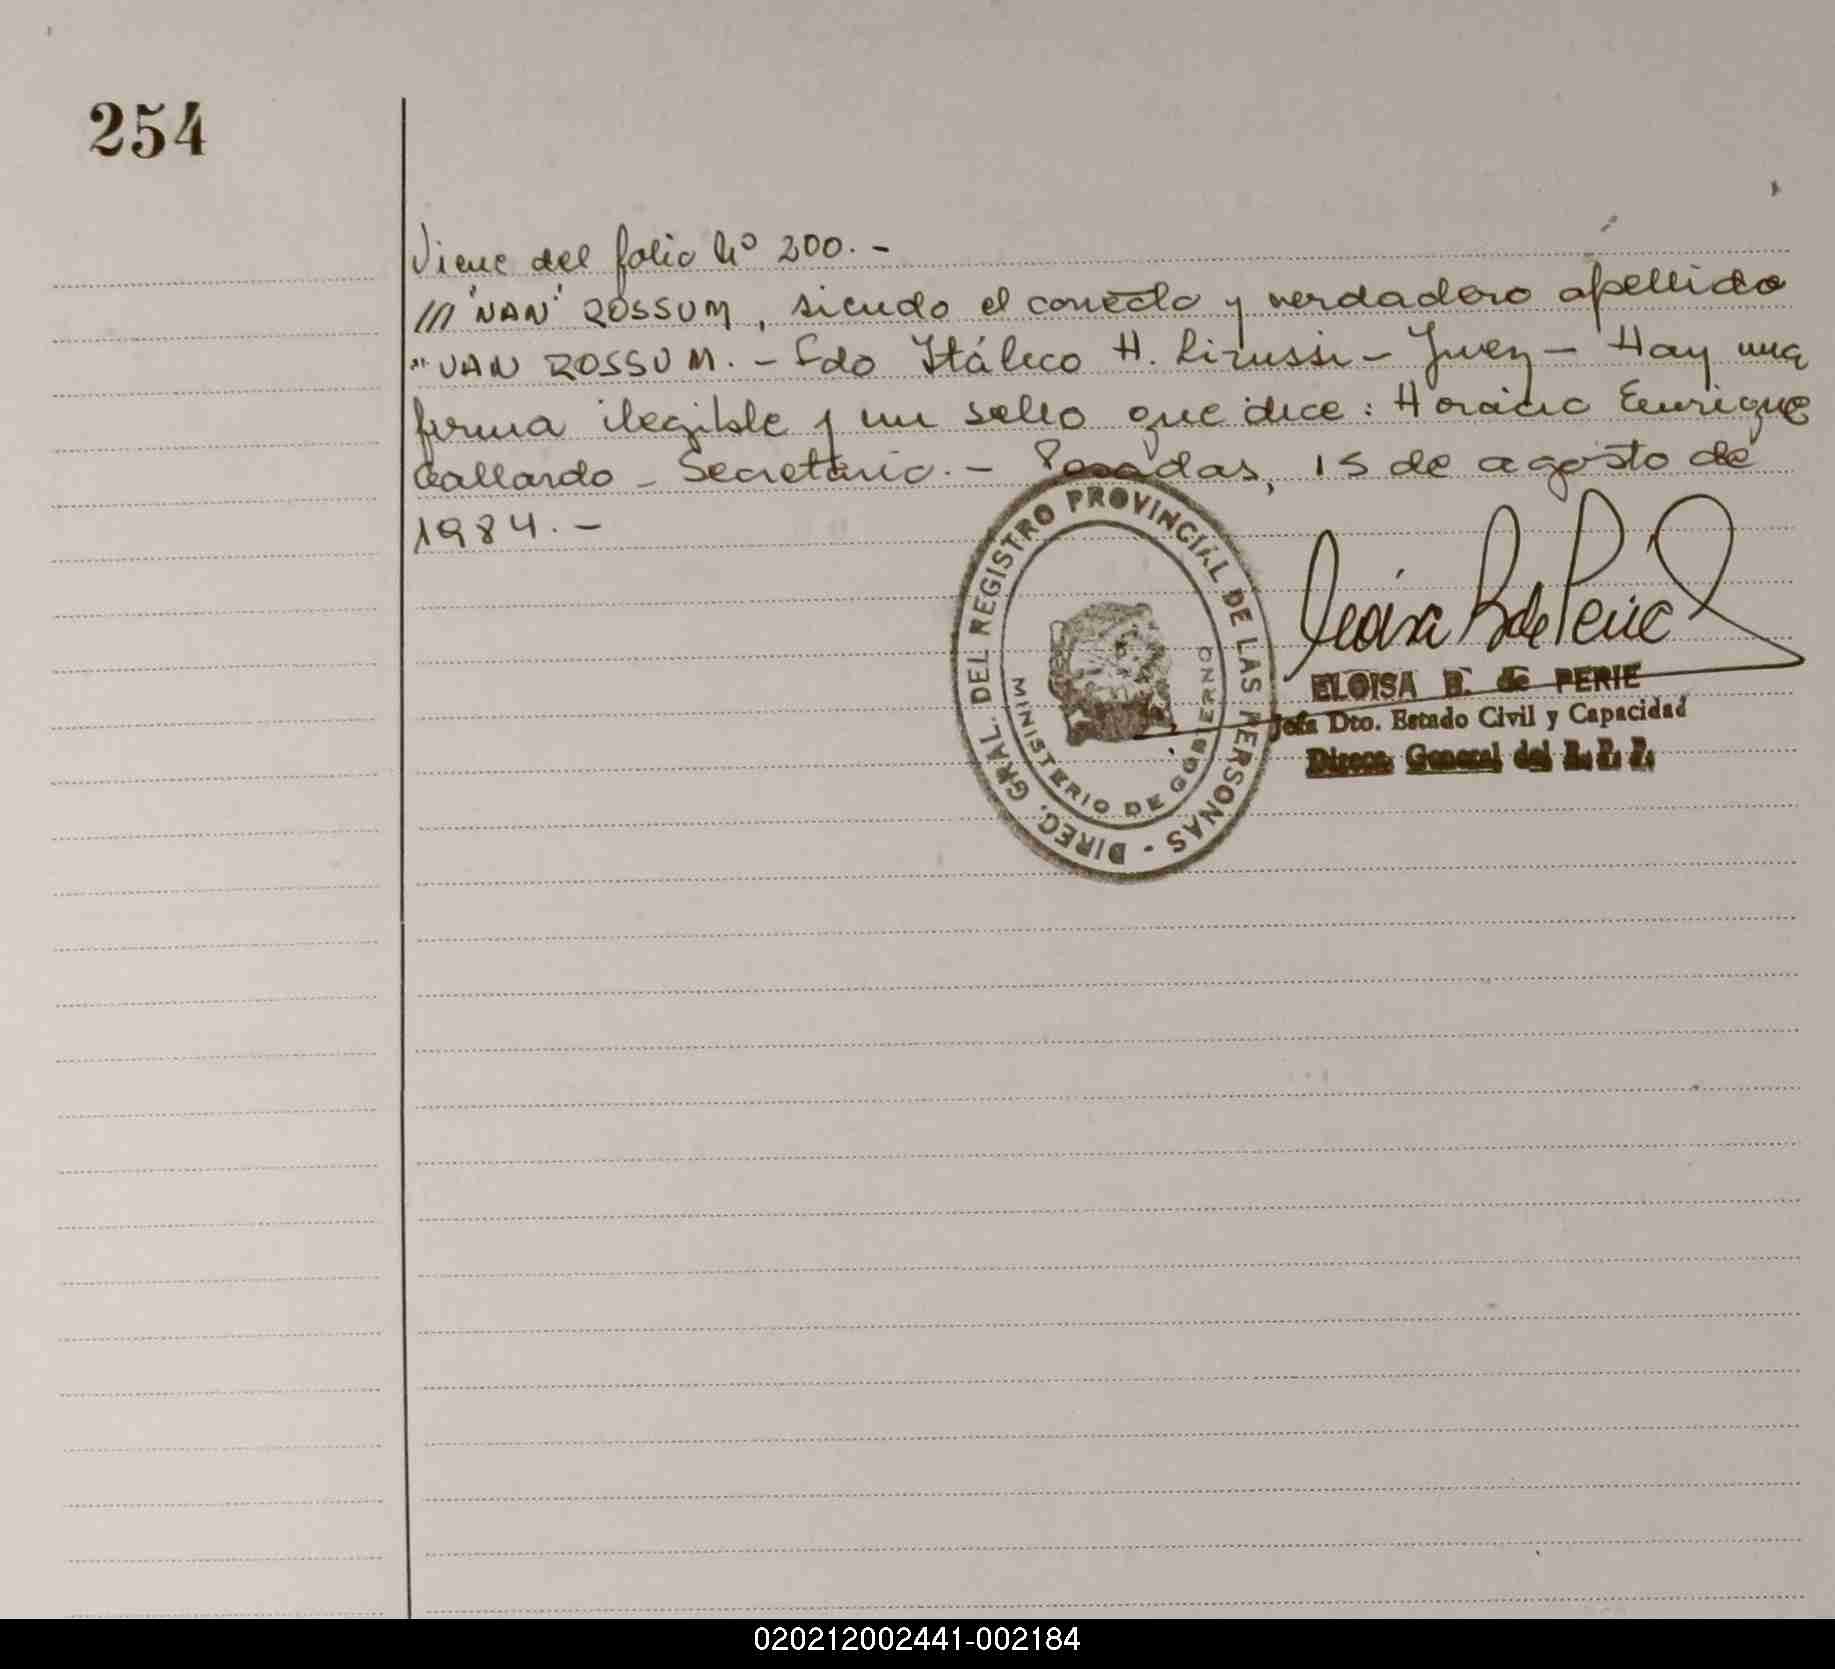 254
Viene del folio Nº 200.-
/// "NAN" ROSSUM, siendo el correcto y verdadero apellido
"VAN ROSSUM.- Fdo Itálico H. Lirussi - Juez - Hay una
firma ilegible y un sello que dice: Horacio Enrique
Gallardo - Secretario.- Posadas, 15 de agosto de
1984.-
DIREC. GRAL. DEL REGISTRO PROVINCIAL DE LAS PERSONAS -
MINISTERIO DE GOBIERNO
Eloisa B de Perie
ELOISA B. de PERIE
Jefa Dto. Estado Civil y Capacidad
Direcc. General del R. P. P.
020212002441-002184